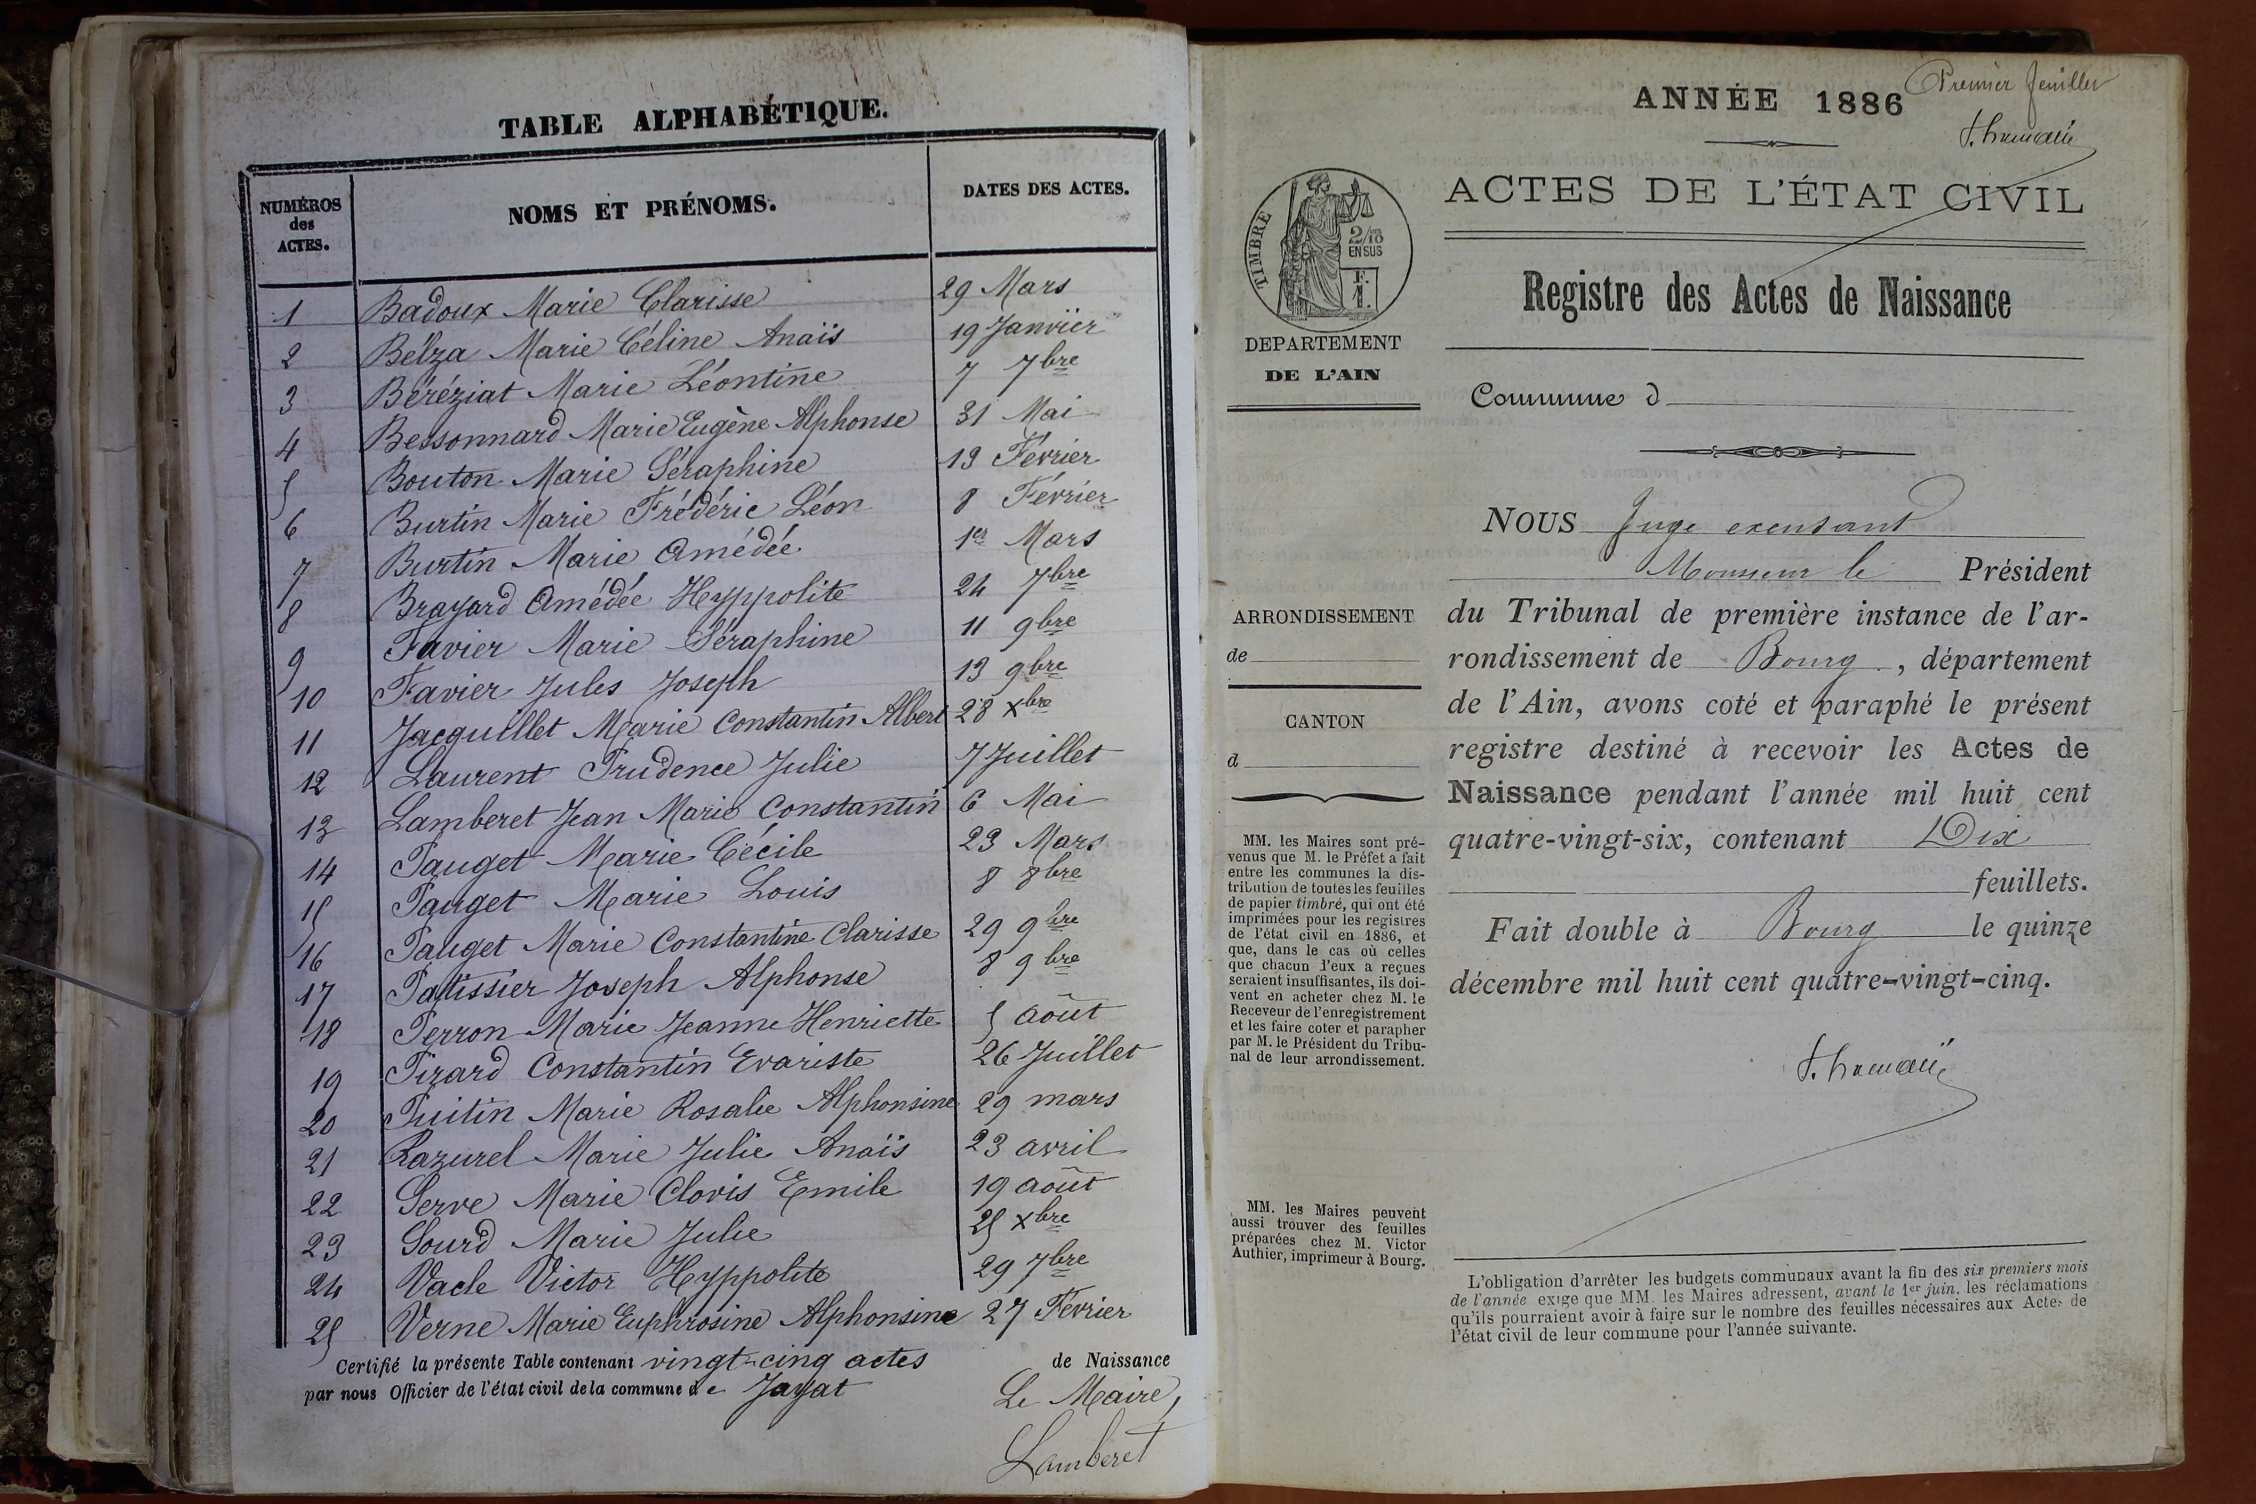 TABLE ALPHABÉTIQUE.
NUMÉROS des ACTES. NOMS ET PRÉNOMS. DATES DES ACTES.
1 Badoux Marie Clarisse 29 Mars
2 Belza Marie Céline Anaïs 19 Janvier
3 Béréziat Marie Léontine 7 7bre
4 Bessonnard Marie Eugène Alphonse 31 Mai
5 Bouton Marie Séraphine 13 Février
6 Burtin Marie Frédéric Léon 8 Février
7 Burtin Marie Amédée 1er Mars
8 Brayard Amédée Hyppolite 24 7bre
9 Favier Marie Séraphine 11 9bre
10 Favier Jules Joseph 13 9bre
11 Jacquillet Marie Constantin Albert 28 xbre
12 Laurent Prudence Julie 7 Juillet
13 Lamberet Jean Marie Constantin 6 Mai
14 Pauget Marie Cécile 23 Mars
15 Pauget Marie Louis 8 8bre
16 Pauget Marie Constantine Clarisse 29 9bre
17 Patissier Joseph Alphonse 8 9bre
18 Perron Marie Jeanne Henriette 5 Août
19 Pirard Constantin Evariste 26 Juillet
20 Puitin Marie Rosalie Alphonsine 29 mars
21 Razurel Marie Julie Anaïs 23 avril
22 Serve Marie Clovis Emile 19 août
23 Sourd Marie Julie 25 xbre
24 Vacle Victor Hyppolite 29 7bre
25 Verne Marie Euphrosine Alphonsine 27 Février
Certifié la présente Table contenant vingt-cinq actes de Naissance
par nous Officier de l'état civil de la commune de Jayat
Le Maire,
Lamberet
Premier feuillet
ANNÉE 1886
ACTES DE L'ÉTAT CIVIL
TIMBRE
2/10 EN SUS
F. 1.
DEPARTEMENT
DE L'AIN
Registre des Actes de Naissance
Commune d
NOUS Juge
Monsieur le Président
du Tribunal de première instance de l'ar-
rondissement de Bourg, département
de l'Ain, avons coté et paraphé le présent
registre destiné à recevoir les Actes de
Naissance pendant l'année mil huit cent
quatre-vingt-six, contenant Dix
feuillets.
Fait double à Bourg le quinze
décembre mil huit cent quatre-vingt-cinq.
ARRONDISSEMENT
de
CANTON
d
MM. les Maires sont pré-
venus que M. le Préfet a fait
entre les communes la dis-
tribution de toutes les feuilles
de papier timbré, qui ont été
imprimées pour les registres
de l'état civil en 1886, et
que, dans le cas où celles
que chacun d'eux a reçues
seraient insuffisantes, ils doi-
vent en acheter chez M. le
Receveur de l'enregistrement
et les faire coter et parapher
par M. le Président du Tribu-
nal de leur arrondissement.
MM. les Maires peuvent
aussi trouver des feuilles
préparées chez M. Victor
Authier, imprimeur à Bourg.
L'obligation d'arrêter les budgets communaux avant la fin des six premiers mois
de l'année exige que MM. les Maires adressent, avant le 1er juin, les réclamations
qu'ils pourraient avoir à faire sur le nombre des feuilles nécessaires aux Actes de
l'état civil de leur commune pour l'année suivante.